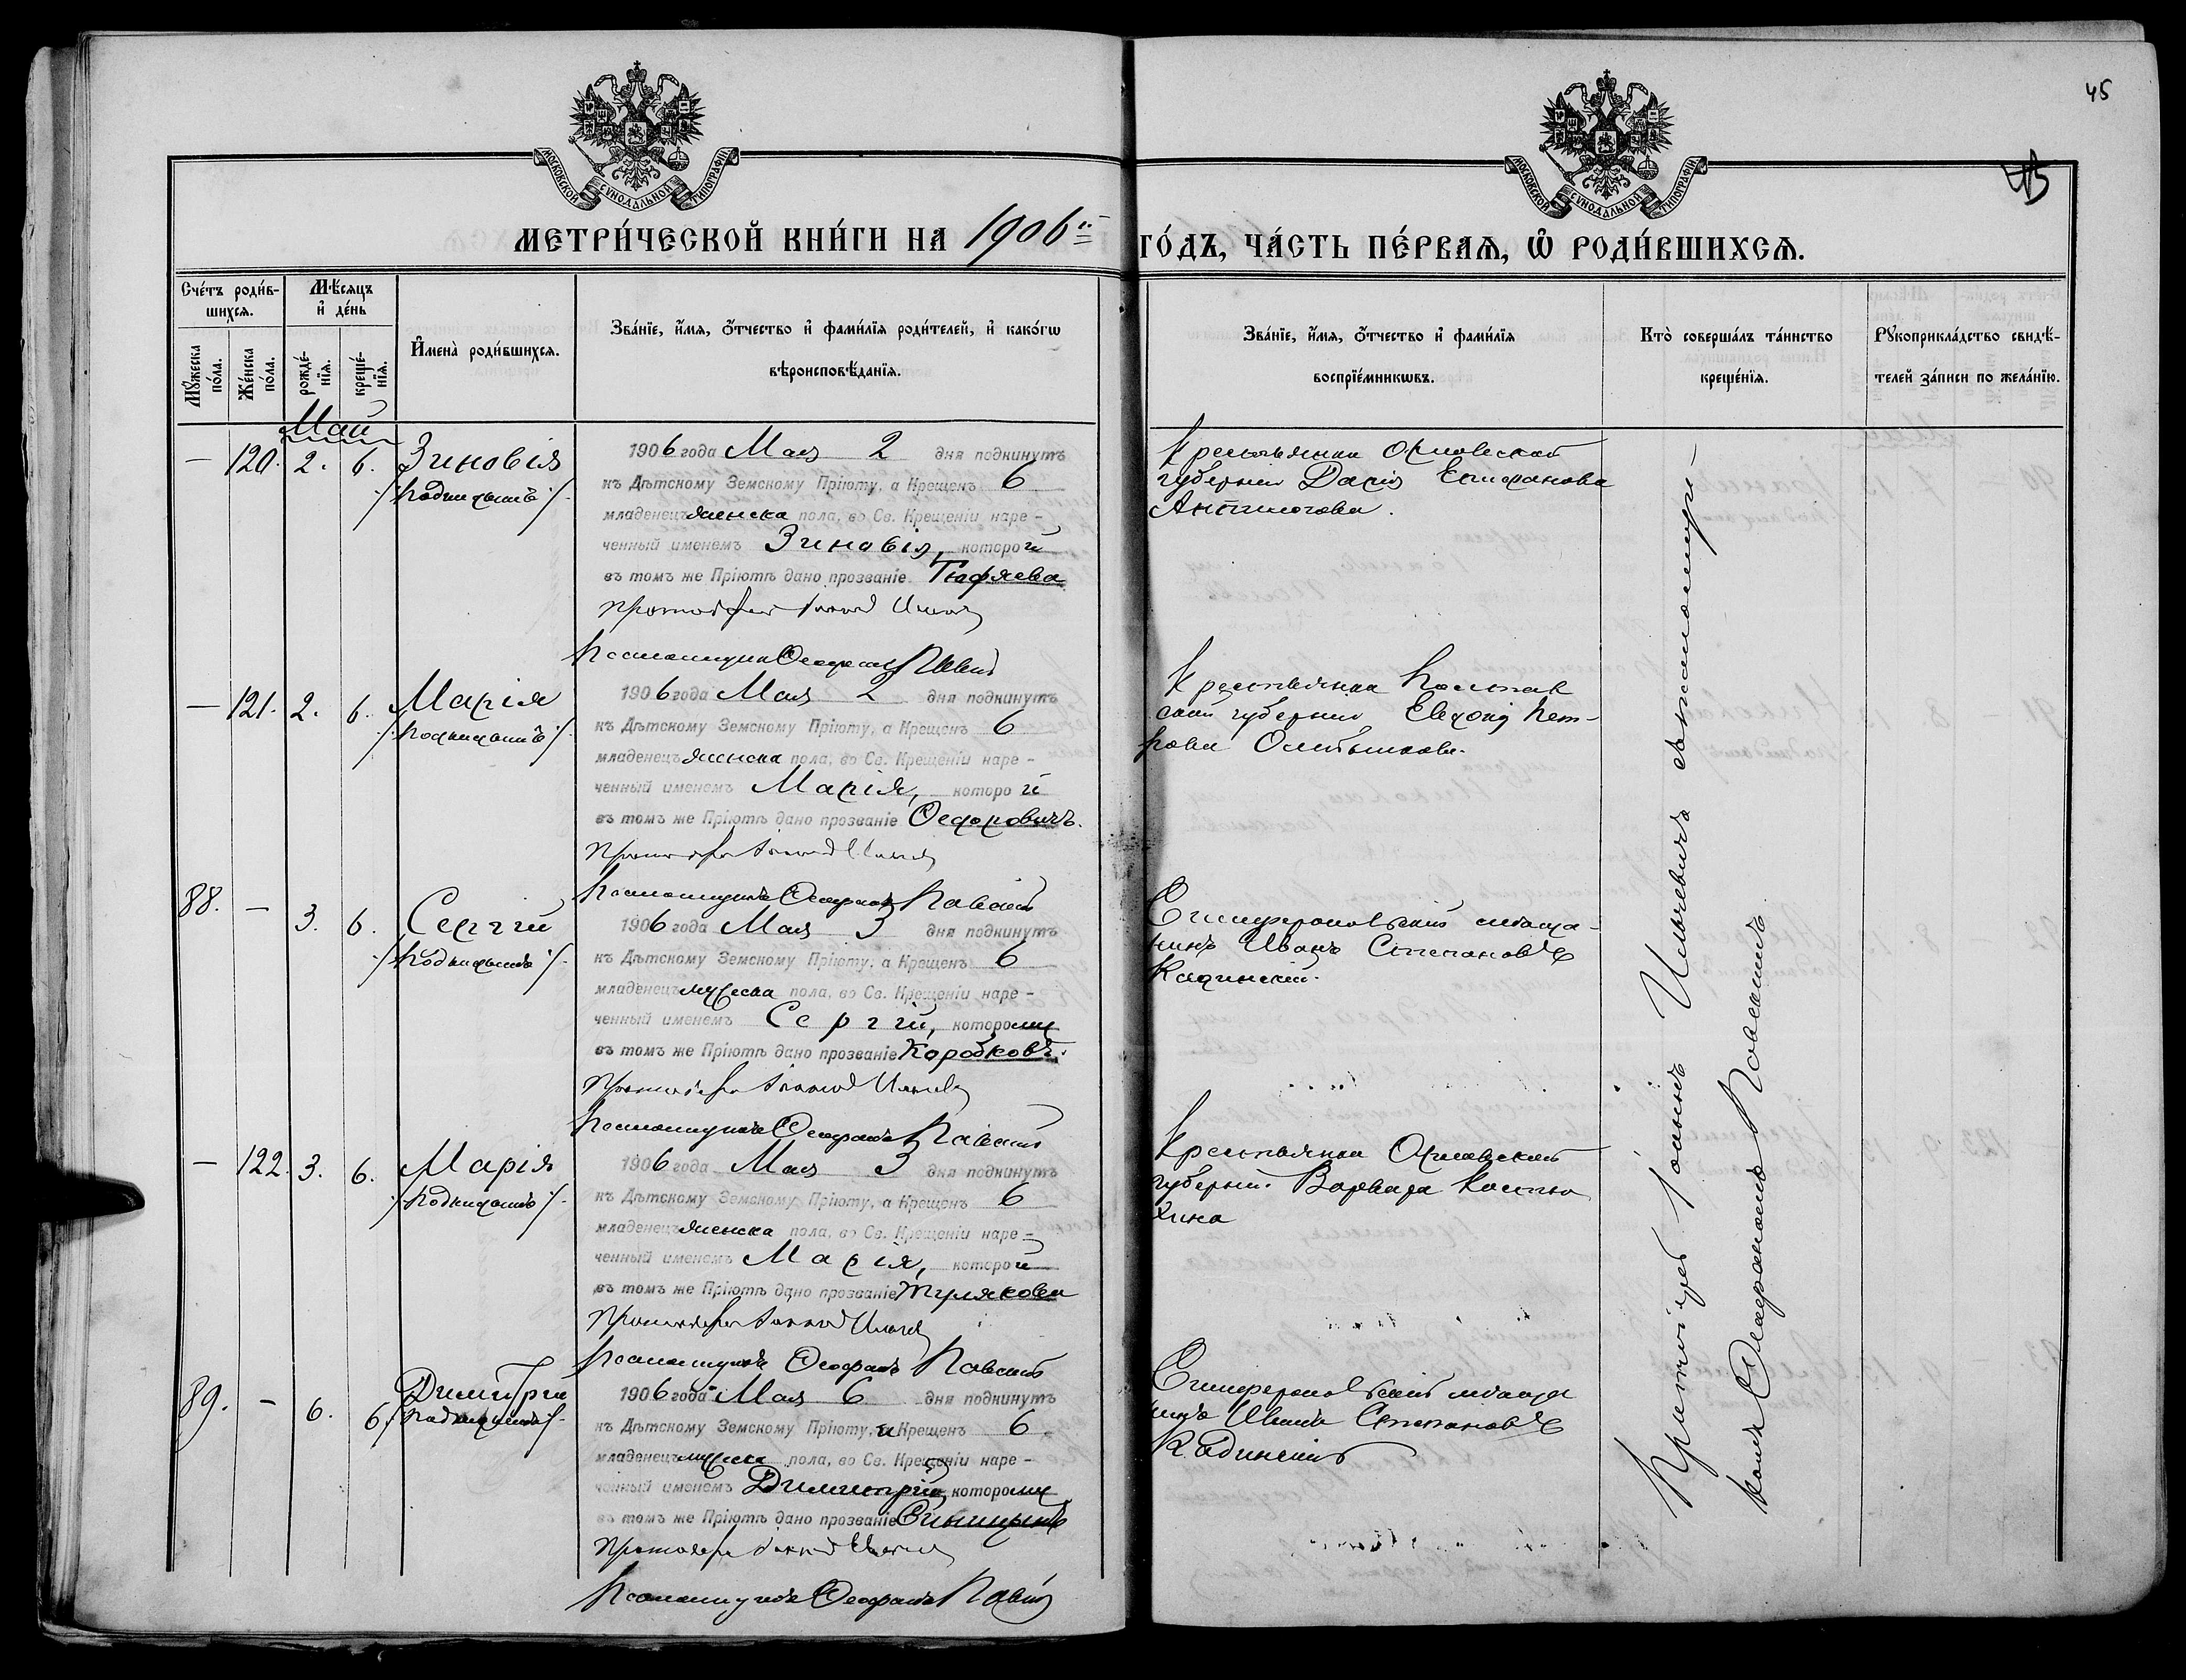 45
45
МОСКОВСКОЙ СѴНОДАЛЬНОЙ ТИПОГРАФІИ
МОСКОВСКОЙ СѴНОДАЛЬНОЙ ТИПОГРАФІИ
МЕТРИ́ЧЕСКОЙ КНИ́ГИ НА 1906й
ГО́ДЪ, ЧА́СТЬ ПЕ́РВАѦ, Ѽ РОДИ́ВШИХСѦ.
Сче́тъ роди́в-
шихсѧ.
Мꙋ́жеска
по́ла.
Же́нска
по́ла.
Мѣ́сѧцъ
и҆ де́нь
рожде́-
нїѧ.
креще́-
нїѧ.
И҆мена̀ роди́вшихсѧ.
Зва́нїе, и҆́мѧ, ѻ҆́тчество и҆ фами́лїѧ роди́телей, и҆ како́гѡ
вѣроисповѣ́данїѧ.
Зва́нїе, и҆́мѧ, ѻ҆́тчество и҆ фами́лїѧ
воспрїе́мникѡвъ.
Кто̀ соверша́лъ та́инство
креще́нїѧ.
Рꙋкоприкла́дство свидѣ́-
телей за́писи по жела́нїю.
Май
— 120. 2. 6. Зиновія
/Подкидышъ/
1906 года Мая 2 дня подкинутъ
къ Дѣтскому Земскому Пріюту, а Крещенъ 6
младенецъ женска пола, во Св. Крещеніи наре-
ченный именемъ Зиновія, которой
въ томъ же Пріютѣ дано прозваніе Тюфяева
Протоіерей Іоаннъ
Псаломщикъ Ѳеофанъ Павскій
Крестьянка Орловской
губерніи Дарія Епифанова
— 121. 2. 6. Марія
/Подкидышъ/
1906 года Мая 2 дня подкинутъ
къ Дѣтскому Земскому Пріюту, а Крещенъ 6
младенецъ женска пола, во Св. Крещеніи наре-
ченный именемъ Марія, которой
въ томъ же Пріютѣ дано прозваніе Ѳедоровичъ.
Протоіерей Іоаннъ
Псаломщикъ Ѳеофанъ Павскій
Крестьянка Полтав
ской губерніи Евдокія Пет-
рова
88. — 3. 6. Сергій
/Подкидышъ/
1906 года Мая 3 дня подкинутъ
къ Дѣтскому Земскому Пріюту, а Крещенъ 6
младенецъ мужеска пола, во Св. Крещеніи наре-
ченный именемъ Сергій, которому
въ томъ же Пріютѣ дано прозваніе Коробковъ.
Протоіерей Іоаннъ
Псаломщикъ Ѳеофанъ Павскій
Симферопольскій мѣща-
нинъ Иванъ Степановъ
Кадинскій.
— 122. 3. 6. Марія
/Подкидышъ/
1906 года Мая 3 дня подкинутъ
къ Дѣтскому Земскому Пріюту, а Крещенъ 6
младенецъ женска пола, во Св. Крещеніи наре-
ченный именемъ Марія, которой
въ томъ же Пріютѣ дано прозваніе Тулякова
Протоіерей Іоаннъ
Псаломщикъ Ѳеофанъ Павскій
Крестьянка Орловской
губерніи Варвара Костю
хина
89. — 6. 6. Димитрій
/Подкидышъ/
1906 года Мая 6 дня подкинутъ
къ Дѣтскому Земскому Пріюту, и Крещенъ 6
младенецъ мужеска пола, во Св. Крещеніи наре-
ченный именемъ Димитрій, которому
въ томъ же Пріютѣ дано прозваніе
Протоіерей Іоаннъ
Псаломщикъ Ѳеофанъ Павскій
Симферопольскій мѣща
нинъ Иванъ Степановъ
Кадинскій
Протоіерей Іоаннъ Ильичевичъ съ псаломщи-
комъ Ѳеофаномъ Павскимъ